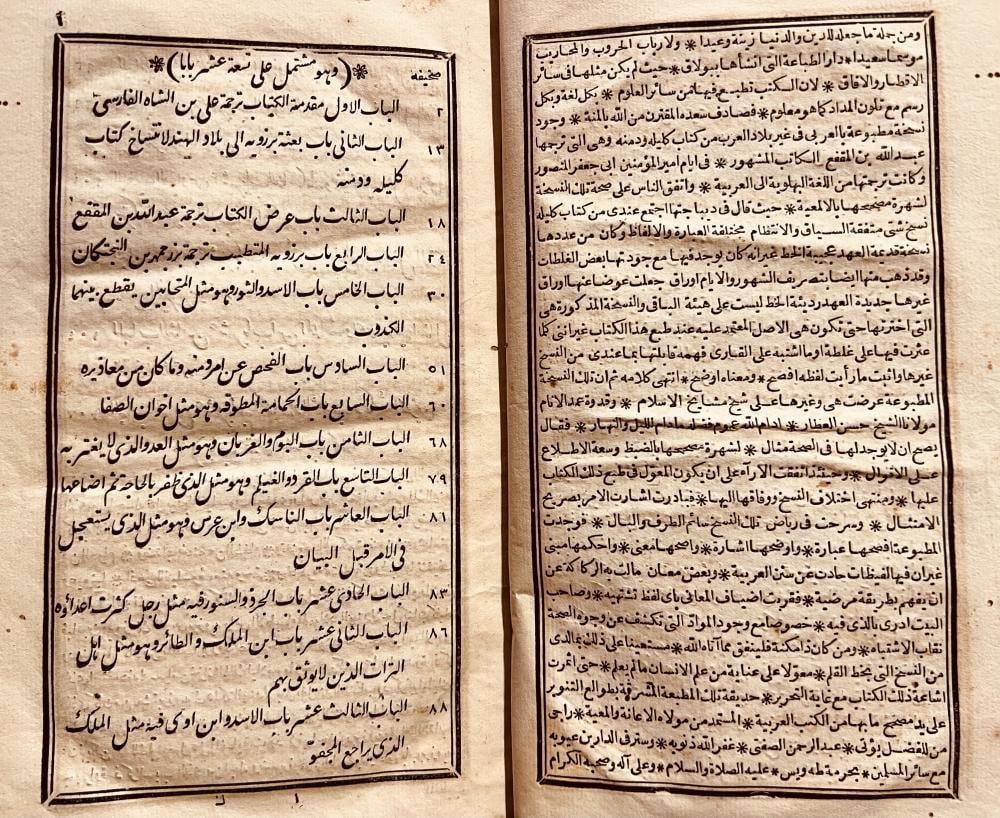 ومن جملة ما جعله للدين والدنيا زينة وعيدا * ولارباب الحروب والمحاريب
موسما سعيدا * دار الطباعة التى انشأها ببولاق * حيث لم يكن مثلها فى سائر
الاقطار والآفاق * لان الكتب تطبع فيها من سائر العلوم * بكل لغة وبكل
رسم مع تلون المداد كما هو معلوم * فصادف سعده المقترن من الله بالمنة * وجود
نسخة مطبوعة بالعربى فى غير بلاد العرب من كتاب كليله ودمنه وهى التى ترجمها
عبد الله بن المقفع الكاتب المشهور * فى ايام امير المؤمنين ابى جعفر المنصور
وكانت ترجمتها من اللغة البهلوية الى العربية * واتفق الناس على صحة تلك النسخة
لشهرة مصححها بالالمعية * حيث قال فى ديباجتها اجتمع عندى من كتاب كليله
نسخ شتى متفقة السياق والانتظام مختلفة العبارة والالفاظ وكان من عددها
نسخة قديمة العهد عجيبة الخط غير انه كان يوجد فيها مع جودتها بعض الغلطات
وقد ذهب منها ايضا بتصاريف الشهور والايام اوراق جعلت عوضا عنها اوراق
غيرها جديدة العهد رديئة الخط ليست على هيئة الباقى والنسخة المذكورة هى
التى اخترتها حتى تكون هى الاصل المعتمد عليه عند طبع هذا الكتاب غير انى كلما
عثرت فيها على غلطة او ما اشتبه على القارئ فهمه قابلتها بما عندى من النسخ
غيرها واثبت ما رأيت لفظه افصح * ومعناه اوضح * انتهى كلامه ثم ان تلك النسخة
المطبوعة عرضت هى وغيرها على شيخ مشايخ الاسلام * وقدوة عمد الانام
مولانا الشيخ حسن العطار * ادام الله عموم فضله مادام الليل والنهار * فقال
يصح ان لا يوجد لها فى الصحة مثال * لشهرة مصححها بالضبط وسعة الاطلاع
على الاقوال * وحينئذ اتفقت الآراء على ان يكون المعول فى طبع ذلك الكتاب
عليها * ومنتهى اختلاف النسخ ووفاقها اليها * فبادرت اشارت الامر بصريح
الامتثال * وسرحت فى رياض تلك النسخ سائم الطرف والبال * فوجدت
المطبوعة افصحها عبارة * واوضحها اشارة * واصحها معنى * واحكمها مبنى
غير ان فيها لفيظات حادت عن سنن العربية * وبعض معان مالت به الركاكة عن
ان يفهم بطريقة مرضية * فقريت اضياف المعانى بأى لفظ تشتهيه * وصاحب
البيت ادرى بالذى فيه * خصوصا مع وجود المواد التى تكشف عن وجوه الصحة
نقاب الاشتباه * ومن كان ذا مكنة فلينفق مما آتاه الله * مستعينا على ذلك بما لدى
من النسخ التى بخط القلم * معولا على عناية من علم الانسان ما لم يعلم * حتى اثمرت
اشاعة ذلك الكتاب مع غاية التحرير * حديقة تلك المطبعة المشرقة بطوالع التنوير
على يد مصحح ما بها من الكتب العربية * المستمد من مولاه الاعانة والمعية * راجى
من للفضل يؤتى * عبد الرحمن الصفتى * غفر الله ذنوبه * وستر فى الدارين عيوبه
مع سائر المسلمين * بحرمة طه ويس * عليه الصلاة والسلام * وعلى آله وصحبه الكرام
١
صحيفه
*(وهو مشتمل على تسعة عشر بابا)*
٢ الباب الاول مقدمة الكتاب ترجمة على بن الشاه الفارسى
١٣ الباب الثانى باب بعثة برزويه الى بلاد الهند لانتساخ كتاب
كليله ودمنه
١٨ الباب الثالث باب عرض الكتاب ترجمة عبد الله بن المقفع
٢٤ الباب الرابع باب برزويه المتطبب ترجمة بزرجمهر بن البختكان
٣٠ الباب الخامس باب الاسد والثور وهو مثل المتحابين يقطع بينهما
الكذوب
٥١ الباب السادس باب الفحص عن امر دمنه وما كان من معاذيره
٦٠ الباب السابع باب الحمامة المطوقة وهو مثل اخوان الصفا
٦٨ الباب الثامن باب البوم والغربان وهو مثل العدو الذى لا يغتر به
٧٩ الباب التاسع باب القرد والغيلم وهو مثل الذى ظفر بالحاجة ثم اضاعها
٨١ الباب العاشر باب الناسك وابن عرس وهو مثل الذى يستعجل
فى الامر قبل البيان
٨٣ الباب الحادى عشر باب الجرذ والسنور فيه مثل رجل كثرت اعداؤه
٨٦ الباب الثانى عشر باب ابن الملك والطائر وهو مثل اهل
الترات الذين لا يوثق بهم
٨٨ الباب الثالث عشر باب الاسد وابن اوى فيه مثل الملك
الذى يراجع المجفو